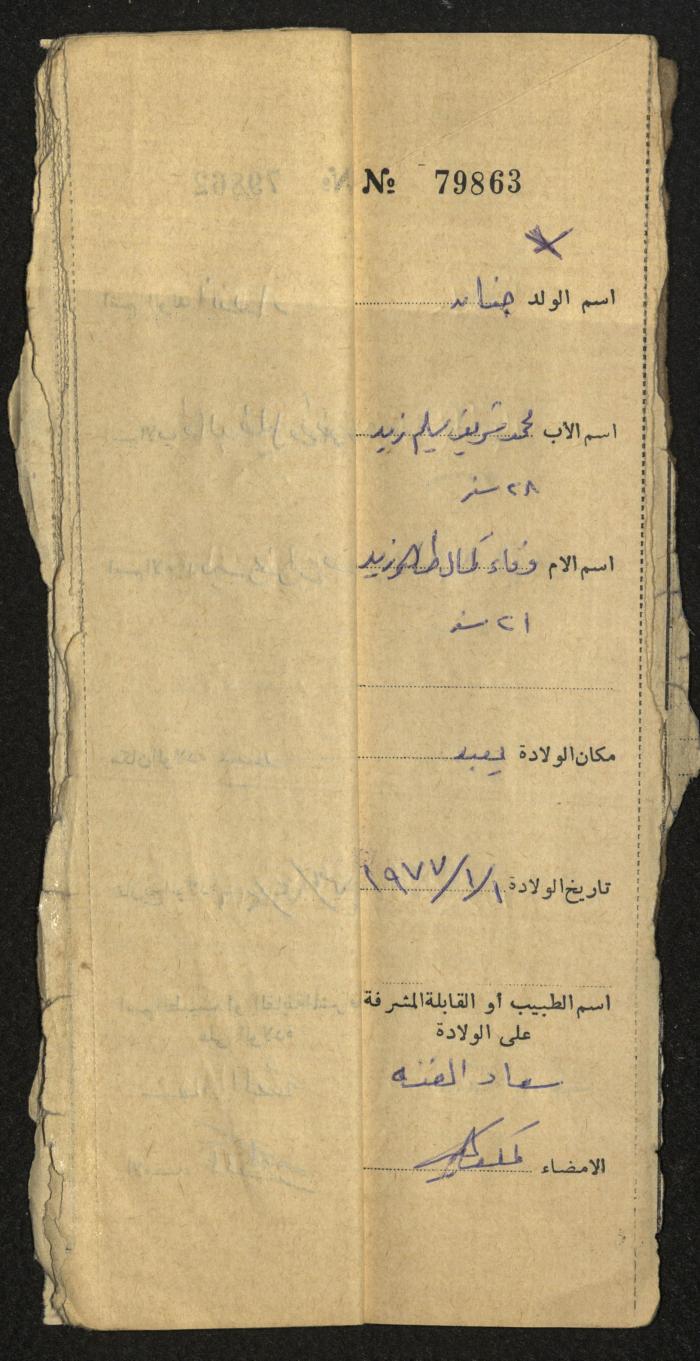 № 79863
اسم الولد
اسم الأب محمد شريف سليم زيد
٢٨ سنه
اسم الام وفاء كمال طاهر زيد
٢١ سنه
مكان الولادة يعبد
تاريخ الولادة ١/١/١٩٧٧
اسم الطبيب أو القابلة المشرفة
على الولادة
سعاد
الامضاء